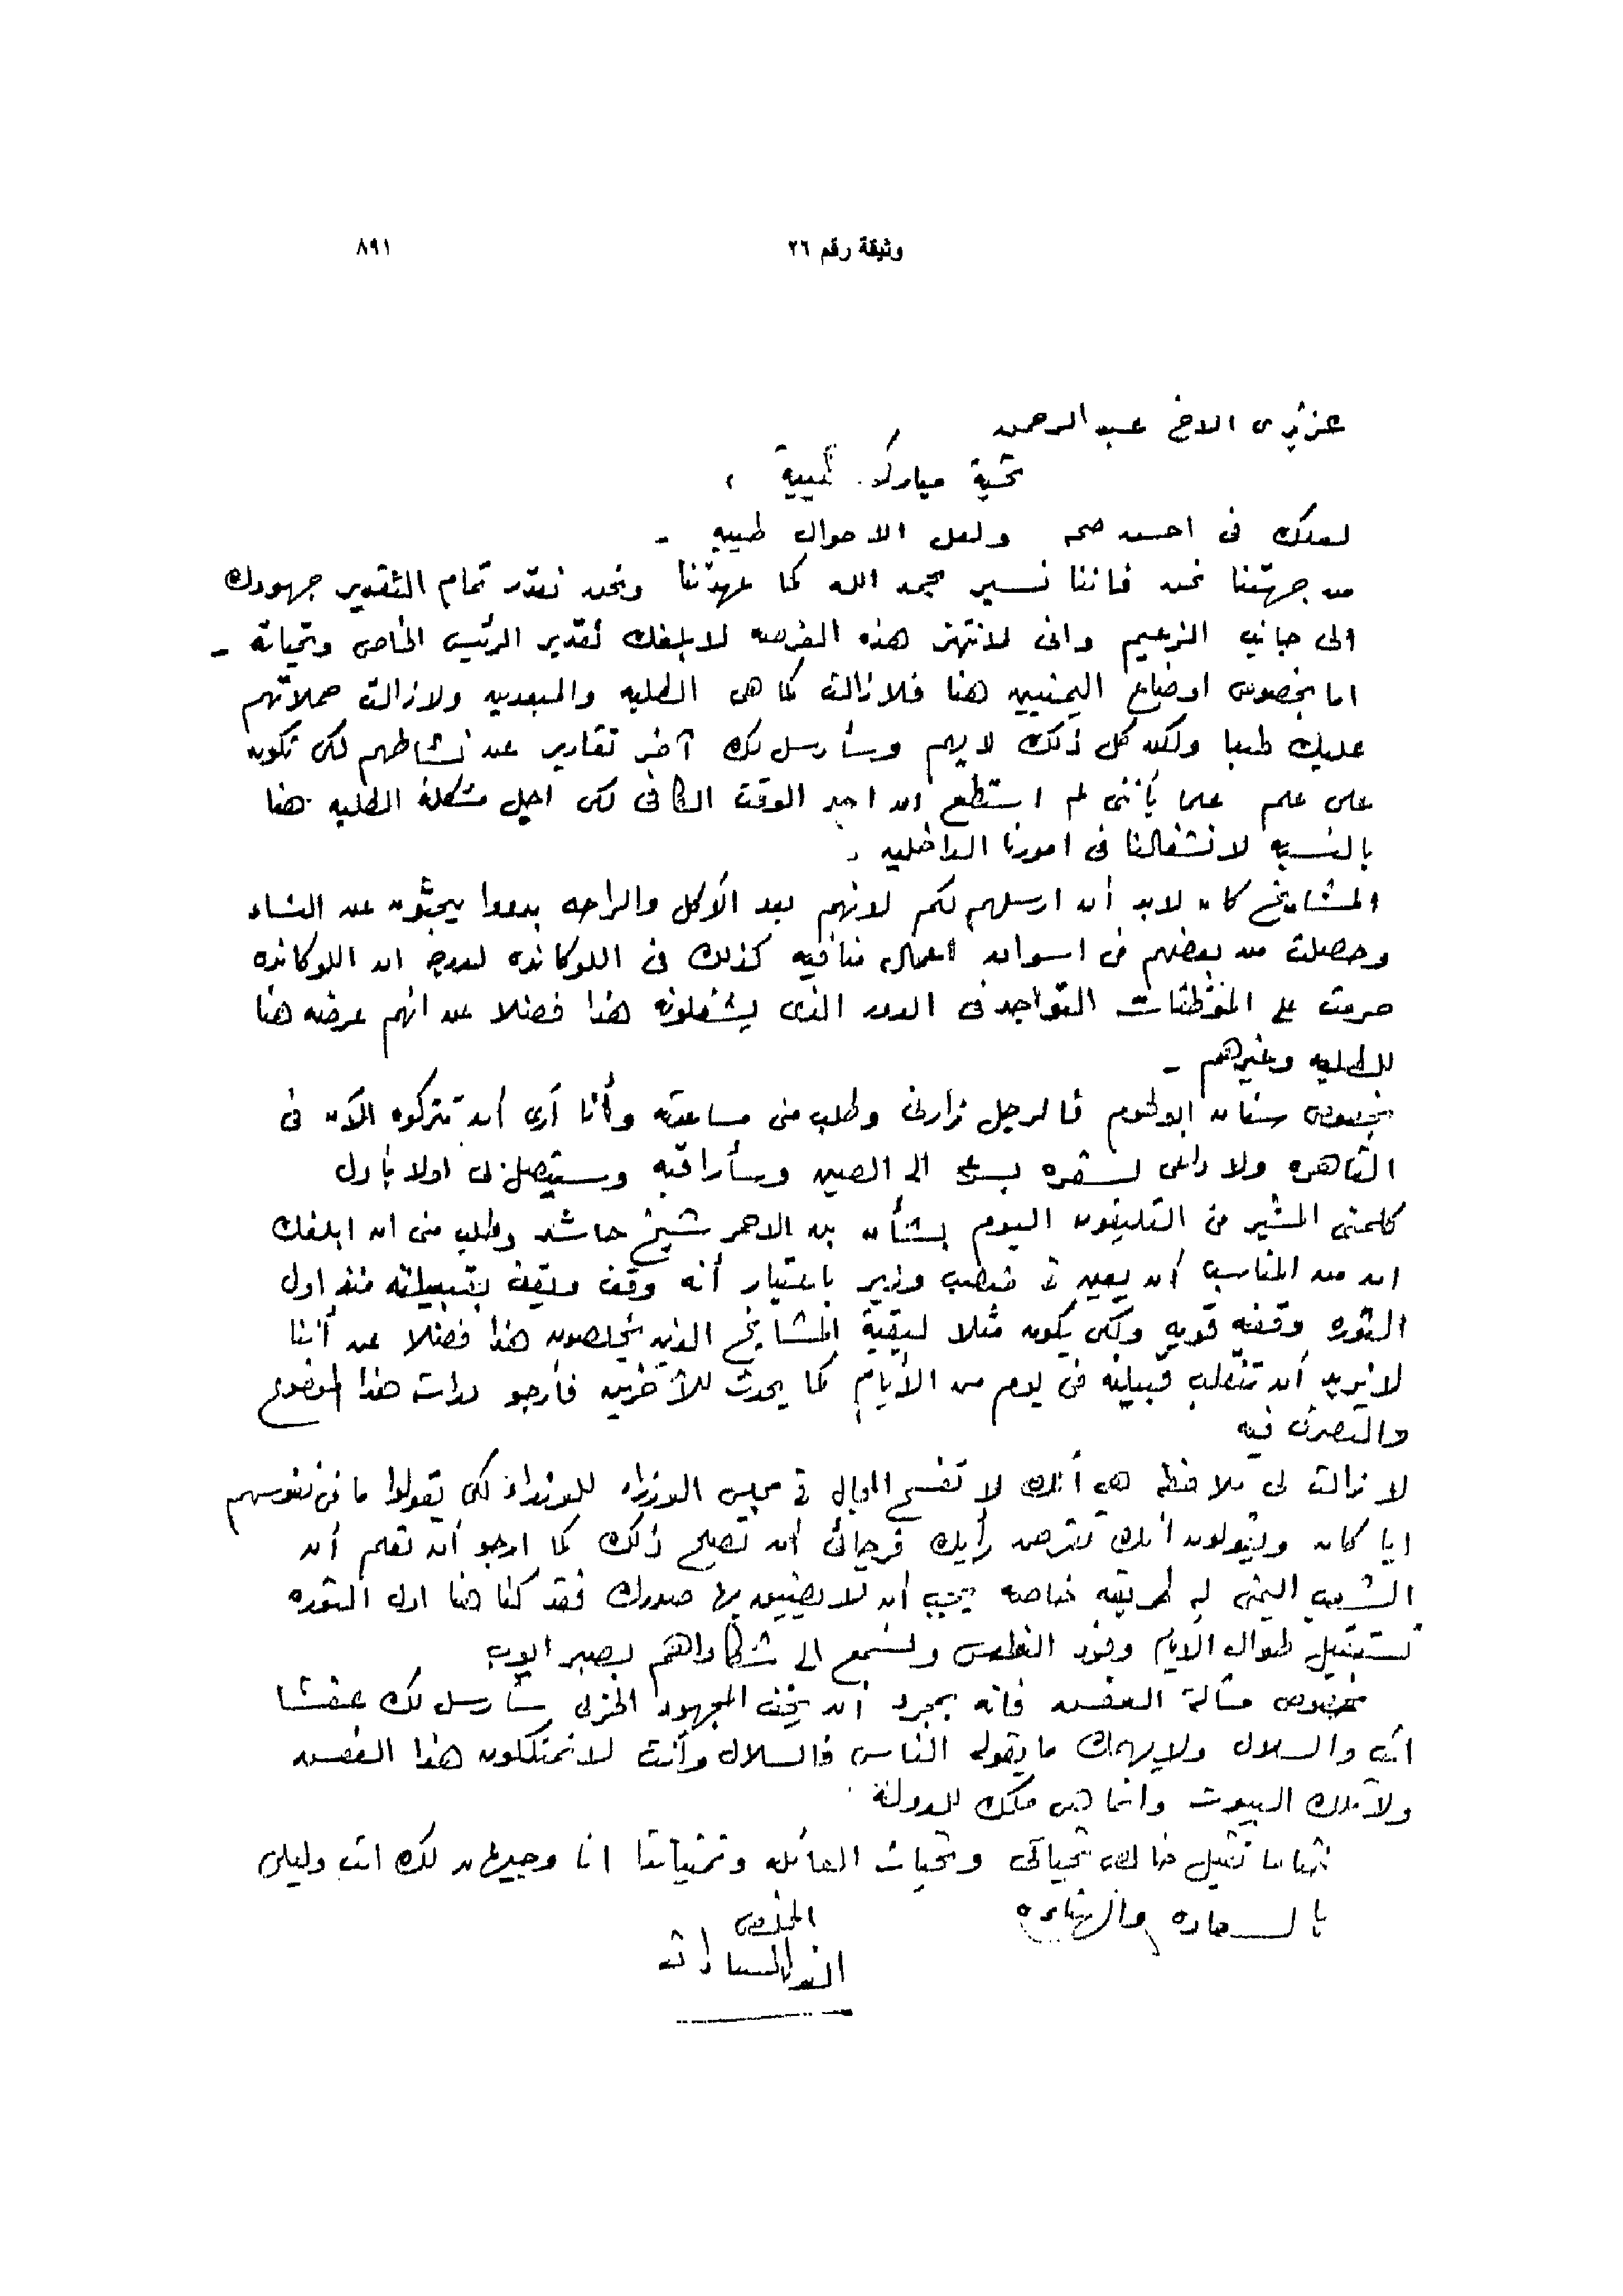 وثيقة رقم ٢٦
٨٩١
عزيزى الاخ عبد الرحمن
تحية مباركه طيبة ،
لعلك فى احسن صحه ولعل الاحوال طيبه -
من جهتنا نحن فاننا نسير بحمد الله كما عهدتنا ونحن نقدر تمام التقدير جهودك
الى جانب الزعيم وانى لانتهز هذه الفرصه لابلغك تقدير الرئيس الخاص وتحياته -
اما بخصوص اوضاع اليمنيين هنا فلا زالت كما هى الطلبه والمبعدين ولازالت حملاتهم
عليك طبعا ولكن كل ذلك لا يهم وسأرسل لك آخر تقارير عن نشاطهم لكى تكون
على علم علما بأننى لم استطع ان اجد الوقت الكافى لكى احل مشكلة الطلبه هنا
بالنسبه لانشغالنا فى امورنا الداخليه .
المشايخ كان لابد أن ارسلهم لكم لانهم بعد الأكل والراحه بدءوا يبحثون عن النساء
وحصلت من بعضهم فى اسوان اعمال منافيه كذلك فى اللوكانده لدرجة ان اللوكانده
حرمت على الموظفات التواجد فى الدور الذى يشغلونه هذا فضلا عن انهم عرضه هنا
للطلبه وغيرهم -
بخصوص سنان ابولحوم فالرجل زارنى وطلب منى مساعدته وأنا أرى أن تتركوه الآن فى
القاهره ولا داعى لسفره الى الصين وسأراقبه وسيتصل بى اولا بأول
كلمنى المشير فى التليفون اليوم بشأن بن الاحمر شيخ حاشد وطلب منى ان ابلغك
ان من المناسب أن يعين فى منصب وزير باعتبار أنه وقف ويقف بقبيلته منذ اول
الثوره وقفه قويه ولكى يكون مثلا لبقية المشايخ الذين يخلصون هذا فضلا عن أننا
لا نريد أن تنقلب قبيلته فى يوم من الأيام كما يحدث للآخرين فأرجو دراسة هذا الموضوع
والتصرف فيه
لا زالت لى ملاحظه هى أنك لا تفسح المجال فى مجلس الوزراء للوزراء لكى يقولوا ما فى نفوسهم
ايا كان ويقولون انك تفرض رأيك فرجائى أن تصلح ذلك كما ارجو أن تعلم أن
الشعب اليمنى له طريقه خاصه يجب أن لا يضيق بها صدرك فقد كنا هنا اول الثوره
نستقبل طوال الايام وفود ونستمع الى شكاواهم بصبر ايوب
بخصوص مسألة العفش فانه بمجرد أن يخف المجهود الحربى سأرسل لك عفشا
انت والسلال ولا يهمك ما يقوله الناس فالسلال وأنت لا تمتلكون هذا العفش
ولا تلك البيوت وانما هى ملك للدولة .
ختاما تقبل خالص تحياتى وتحيات العائله وتمنياتنا انا وجيهان لك انت وليلى
بالسعاده والهناءه
المخلص
انور السادات